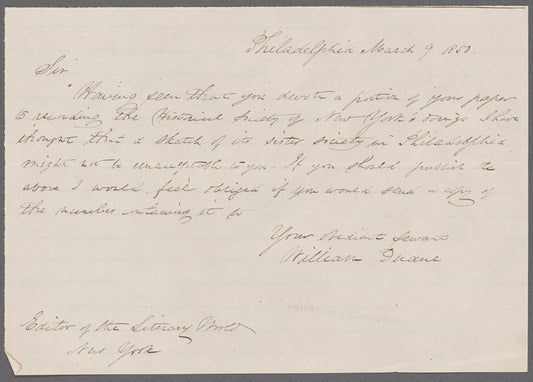 Philadelphia March 9. 1850.
Sir
Having seen that you devote a portion of your paper
to recording the Historical Society of New York's doings I have
thought that a sketch of its sister society in Philadelphia
might not be unacceptable to you. If you should publish the
above I would feel obliged if you would send a copy of
the number containing it to
Your obedient servant
William Duane
Editor of the Literary World
New York